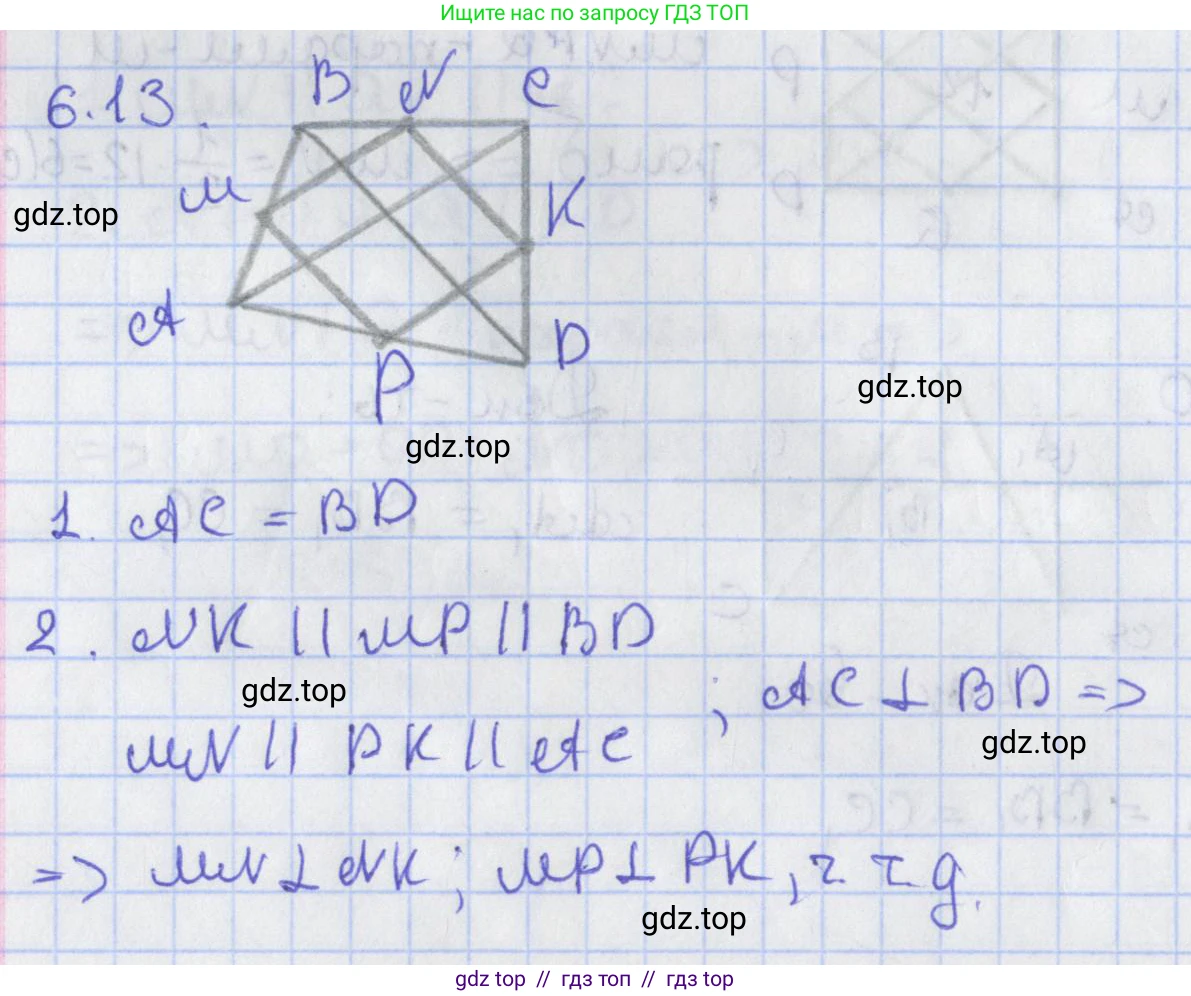 Ищите нас по запросу ГДЗ ТОП
6.13.
B N C
M K
gdz.top
A P D
gdz.top
gdz.top
1. AC = BD
2. NK || MP || BD
gdz.top
; AC ⊥ BD =>
MN || PK || AC
gdz.top
=> MN ⊥ NK; MP ⊥ PK, ч т д.
gdz.top
gdz top // гдз топ // gdz top